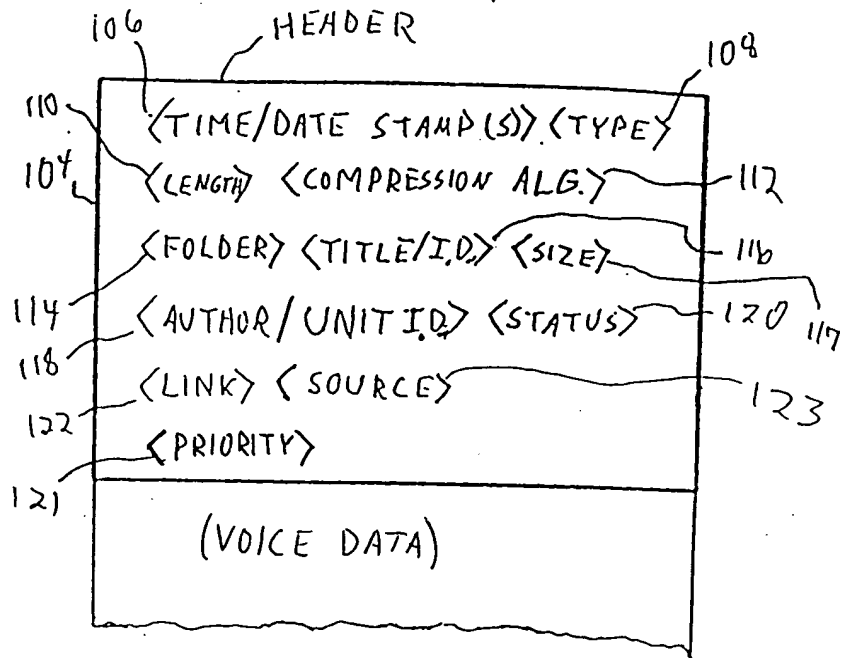 106 HEADER 108
110 <TIME/DATE STAMP(S)> <TYPE>
104 <LENGTH> <COMPRESSION ALG.> 112
<FOLDER> <TITLE/I.D.> <SIZE> 116
114 <AUTHOR/UNIT I.D.> <STATUS> 120 117
118
<LINK> <SOURCE> 123
122
<PRIORITY>
121
(VOICE DATA)